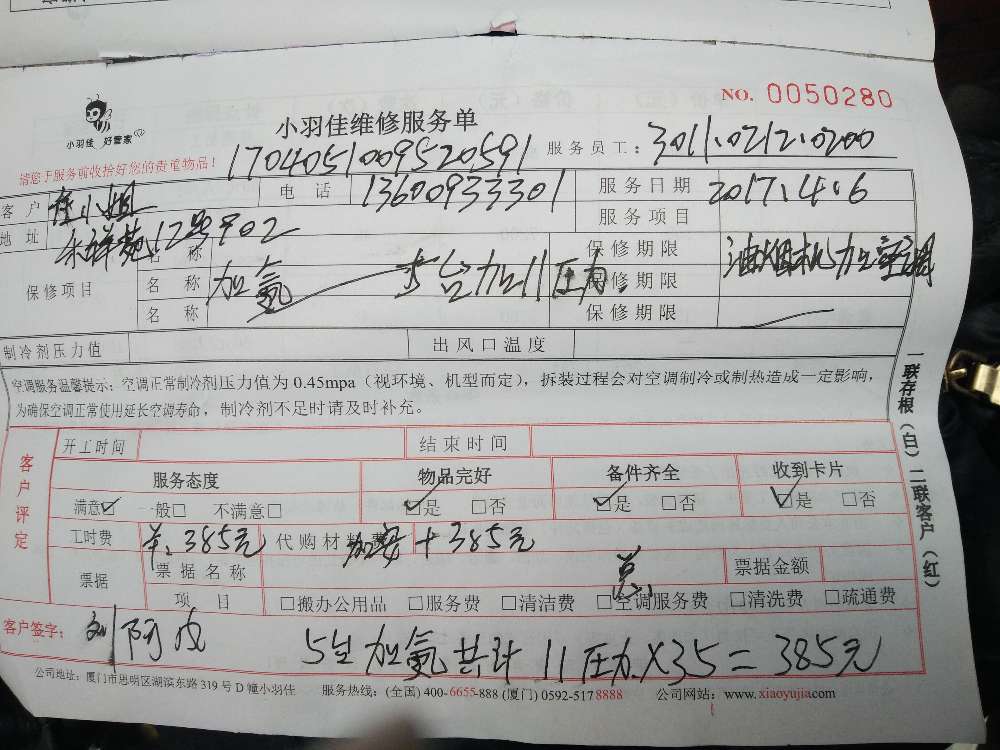 NO. 0050280
小羽佳 好管家
小羽佳维修服务单
请您于服务前收拾好您的贵重物品！
1704051009520591
服务员工：3011.0212.0200
客户 小姐 电话 13600933301 服务日期 2017.4.6
地址 12号902 服务项目 油烟机加空调
保修项目
名称 保修期限
名称 加氟 5台加11压力 保修期限
名称 保修期限
制冷剂压力值 出风口温度
空调服务温馨提示：空调正常制冷剂压力值为 0.45mpa（视环境、机型而定），拆装过程会对空调制冷或制热造成一定影响，
为确保空调正常使用延长空调寿命，制冷剂不足时请及时补充。
客户评定
开工时间 结束时间
服务态度 物品完好 备件齐全 收到卡片
满意☑ 一般□ 不满意□ ☑是 □否 ☑是 □否 ☑是 □否
工时费 385元 代购材料费 +385元
票据 票据名称 票据金额
项目 □搬办公用品 □服务费 □清洁费 □空调服务费 □清洗费 □疏通费
客户签字： 刘阿
5台加氟共计11压力×35=385元
公司地址：厦门市思明区湖滨东路 319 号 D 幢小羽佳 服务热线：(全国) 400-6655-888 (厦门) 0592-517 8888 公司网站：www.xiaoyujia.com
一联存根（白）二联客户（红）